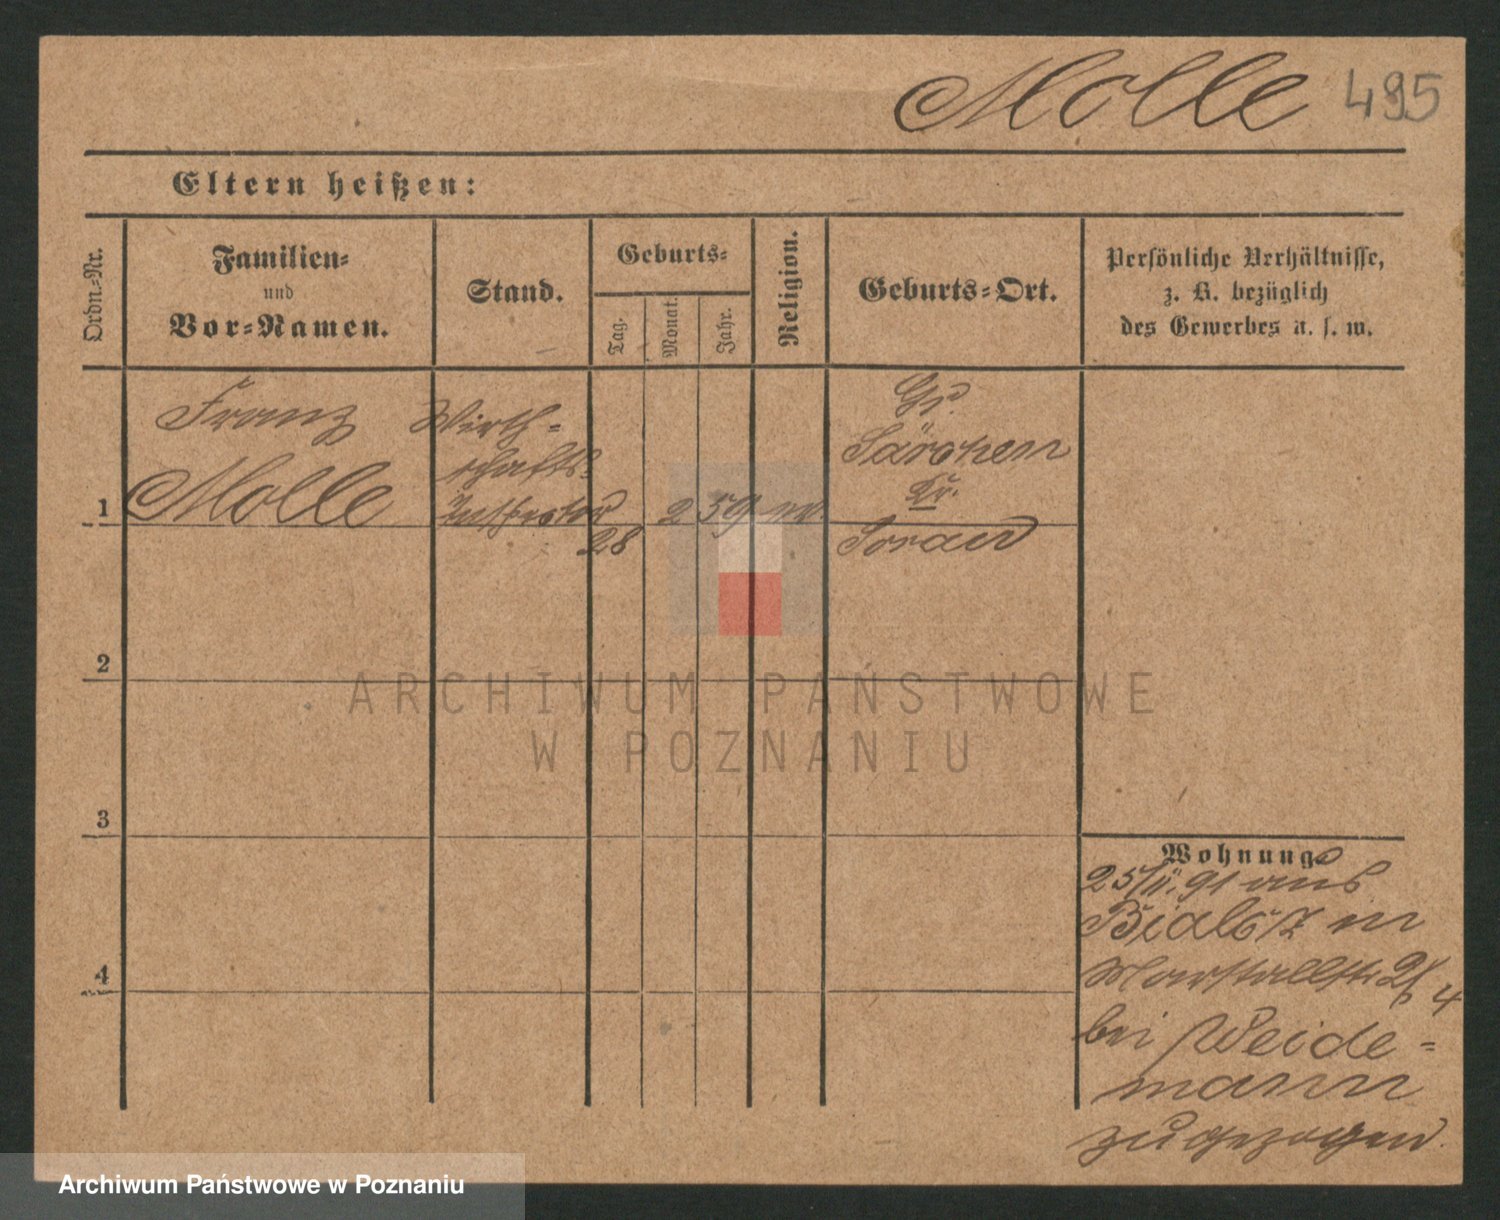 Molle 495
Eltern heißen:
Ordn.-Nr.
Familien-
und
Vor-Namen.
Stand.
Geburts-
Tag.
Monat.
Jahr.
Religion.
Geburts-Ort.
Persönliche Verhältnisse,
z. B. bezüglich
des Gewerbes u. s. w.
1
Franz
Molle
Wirth-
schafts-
Inspector
28 2 59
Gr.
Särchen
Kr.
Sorau
2
3
4
Wohnung.
25/11. 91 aus
in
Marstallstr. 4
bei Weide-
mann
zugezogen.
ARCHIWUM PAŃSTWOWE
W POZNANIU
Archiwum Państwowe w Poznaniu